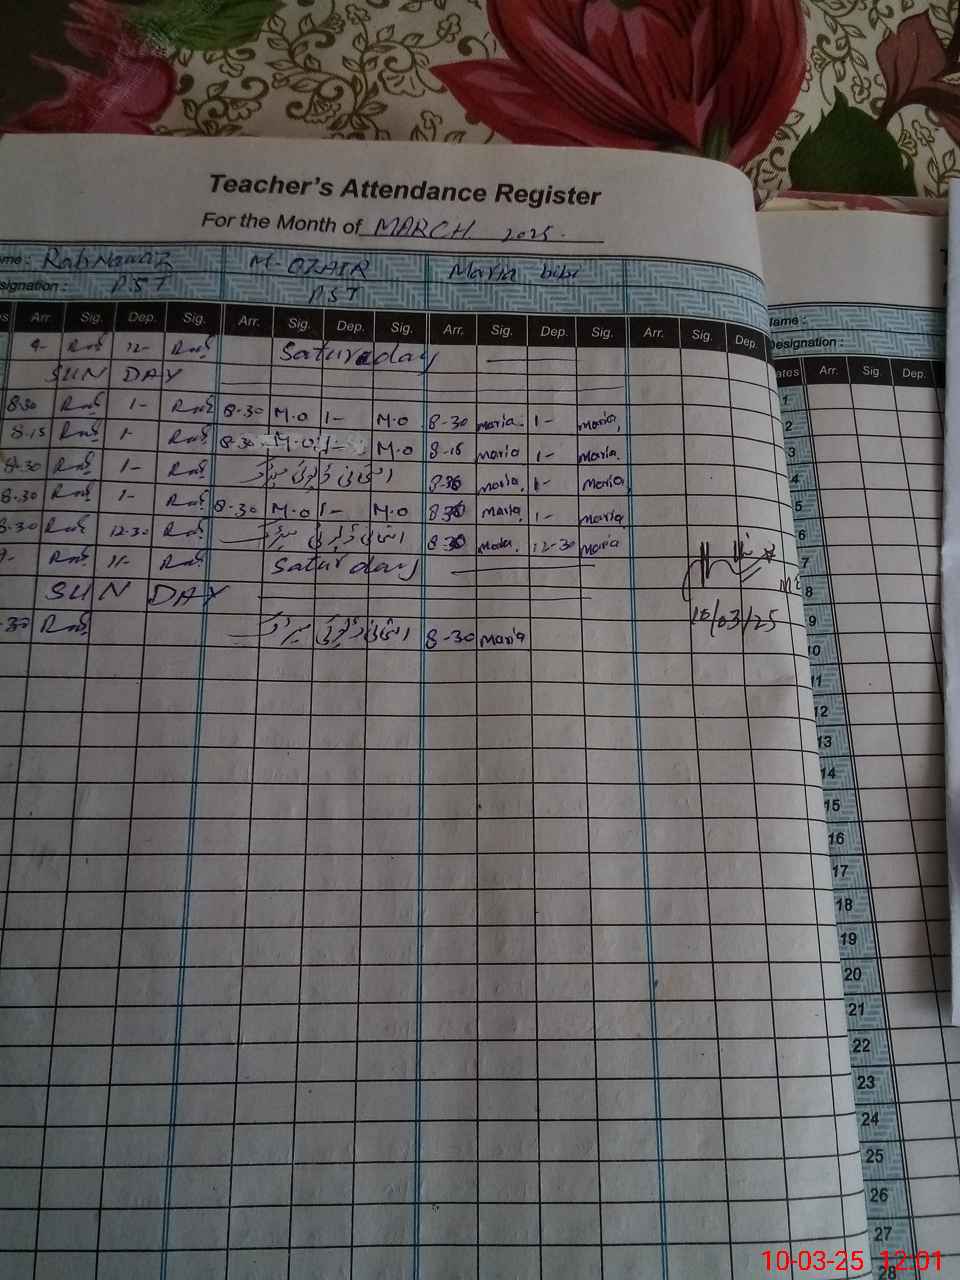 Teacher's Attendance Register
For the Month of MARCH 2025.
me: RabNawaz M-OZAIR Maria bibi
signation: PST PST
Arr. Sig. Dep. Sig. Arr. Sig. Dep. Sig. Arr. Sig. Dep. Sig. Arr. Sig. Dep.
9- 12- Saturaday
SUN DAY
8-30 1- 8-30 M.O 1- M.O 8-30 maria. 1- maria,
8-15 1- 8-30 M.O 1- M.O 8-15 maria 1- maria.
8-30 1- 8-30 maria, 1- maria,
8-30 1- 8-30 M.O 1- M.O 8-30 maria, 1- maria
8-30 12-30 8-30 maria. 12-30 maria
9- 11- Saturday
SUN DAY
-30 8-30 maria
10/03/25
lame:
Designation:
ates Arr. Sig. Dep.
1
2
3
4
5
6
7
8
9
10
11
12
13
14
15
16
17
18
19
20
21
22
23
24
25
26
27
28
10-03-25 12:01